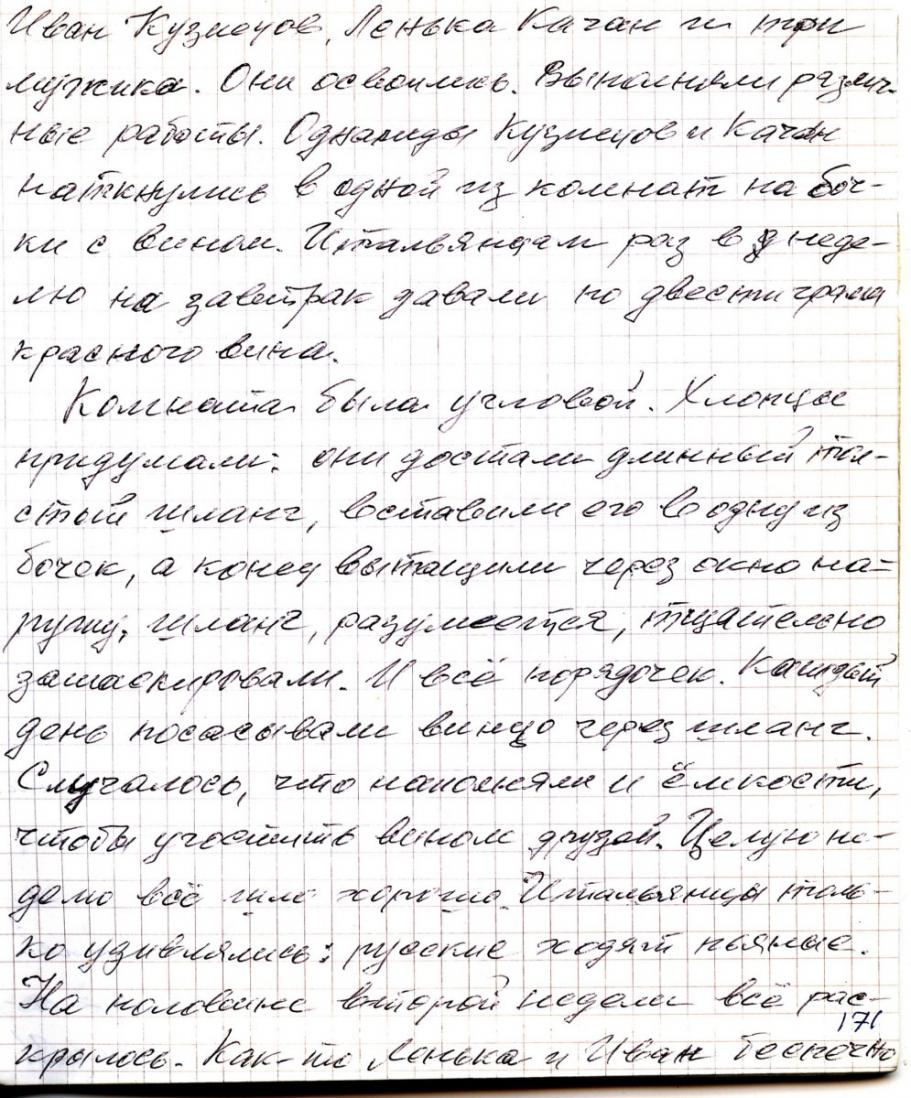 Иван Кузнецов, Ленька Качан и три
мужика. Они освоились. Выполняли различ-
ные работы. Однажды Кузнецов и Качан
наткнулись в одной из комнат на боч-
ки с вином. Итальянцам раз в неде-
лю на завтрак давали по двести грамм
красного вина.
Комната была угловой. Хлопцы
придумали: они достали длинный тол-
стый шланг, вставили его в одну из
бочек, а конец вытащили через окно на-
ружу, шланг, разумеется, тщательно
замаскировали. И всё порядочек. Каждый
день посасывали винцо через шланг.
Случалось, что наполняли и ёмкости,
чтобы угостить вином друзей. Целую не-
делю всё шло хорошо. Итальянцы толь-
ко удивлялись: русские ходят пьяные.
На половине второй недели всё рас-
171
крылось. Как-то Ленька и Иван беспечно